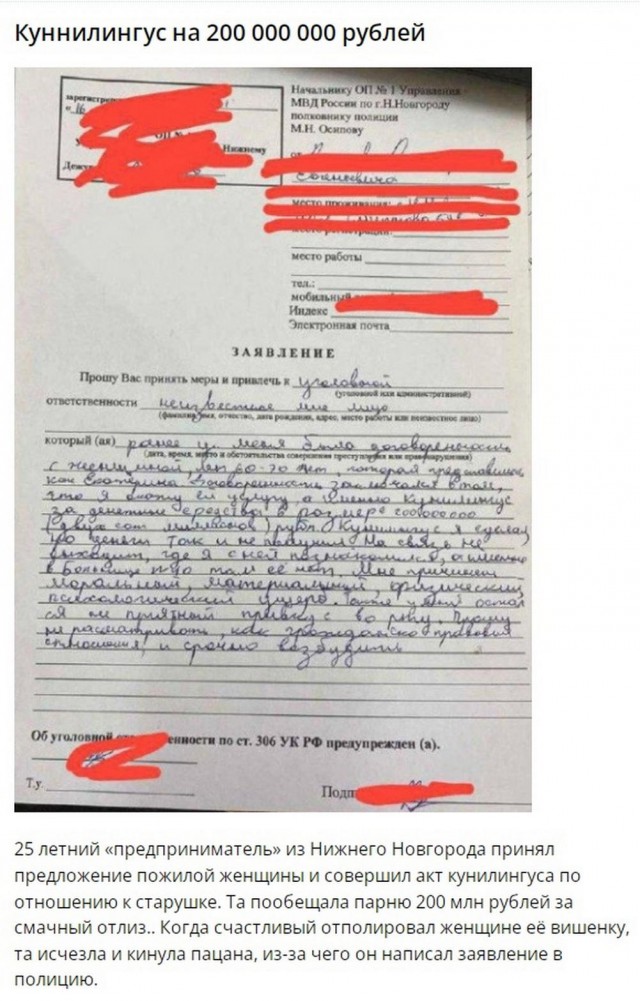 Куннилингус на 200 000 000 рублей
Начальнику ОП № 1 Управления
МВД России по г.Н.Новгороду
полковнику полиции
М.Н. Осипову
зарегистри
Нижнему
Дежу
от
место проживания:
место регистрации:
место работы
тел.:
мобильный
Индекс
Электронная почта
ЗАЯВЛЕНИЕ
Прошу Вас принять меры и привлечь к уголовной
(уголовной или административной)
ответственности неизвестное мне лицо
(фамилия, имя, отчество, дата рождения, адрес, место работы или неизвестное лицо)
который (ая) ранее у меня была договоренность
(дата, время, место и обстоятельства совершения преступления или правонарушения)
с женщиной, лет 60-70 лет, которая представилась
как Екатерина. Договоренность заключалась в том,
что я окажу ей услугу, а именно Кунилингус
за денежные средства в размере 200000000
(двух сот миллионов) рубл. Кунилингус я сделал
но деньги так и не получил. На связь не
выходит, где я с ней познакомился, а именно
в больнице № 40 там её нет. Мне причинен
моральный, материальный, физический,
психологический ущерб. Также у меня остал
ся не приятный привкус во рту. Прошу
не рассматривать, как гражданско правовые
отношения, и срочно возбудить
Об уголовной ственности по ст. 306 УК РФ предупрежден (а).
Т.у.
Подп
25 летний «предприниматель» из Нижнего Новгорода принял
предложение пожилой женщины и совершил акт кунилингуса по
отношению к старушке. Та пообещала парню 200 млн рублей за
смачный отлиз.. Когда счастливый отполировал женщине её вишенку,
та исчезла и кинула пацана, из-за чего он написал заявление в
полицию.